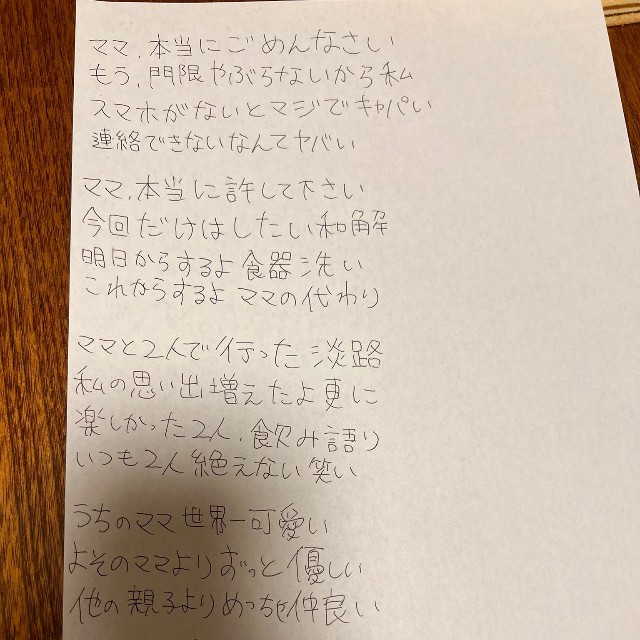 ママ、本当にごめんなさい
もう、門限やぶらないから私
スマホがないとマジでキャパい
連絡できないなんてヤバい
ママ、本当に許して下さい
今回だけはしたい和解
明日からするよ食器洗い
これからするよママの代わり
ママと2人で行った淡路
私の思い出増えたよ更に
楽しかった2人、飲み語り
いつも2人絶えない笑い
うちのママ世界一可愛い
よそのママよりずっと優しい
他の親子よりめっちゃ仲良い